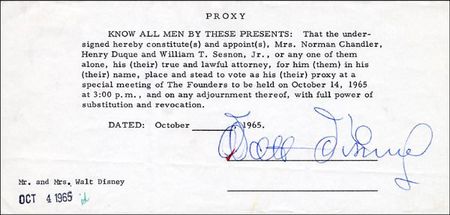 PROXY
KNOW ALL MEN BY THESE PRESENTS: That the under-
signed hereby constitute(s) and appoint(s), Mrs. Norman Chandler,
Henry Duque and William T. Sesnon, Jr., or any one of them
alone, his (their) true and lawful attorney, for him (them) in his
(their) name, place and stead to vote as his (their) proxy at a
special meeting of The Founders to be held on October 14, 1965
at 3:00 p.m., and on any adjournment thereof, with full power of
substitution and revocation.
DATED: October ______, 1965.
Walt Disney
Mr. and Mrs. Walt Disney
OCT 4 1965